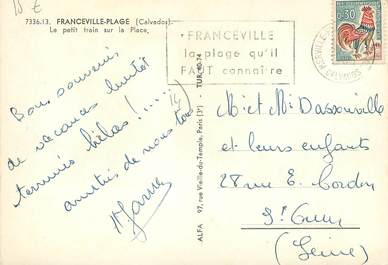 7336.13. FRANCEVILLE-PLAGE (Calvados).
Le petit train sur la Place.
FRANCEVILLE
la plage qu'il
FAUT connaitre
0,30
CALVADOS
Bons souvenirs
de vacances bientôt
terminés hélas!......
amitiés de nous tous
ALFA 97, rue Vieille-du-Temple, Paris (3e)
TUR. 40-74
M. et Me
et leurs enfants
28 rue E. Cordon
St Ouen
(Seine)